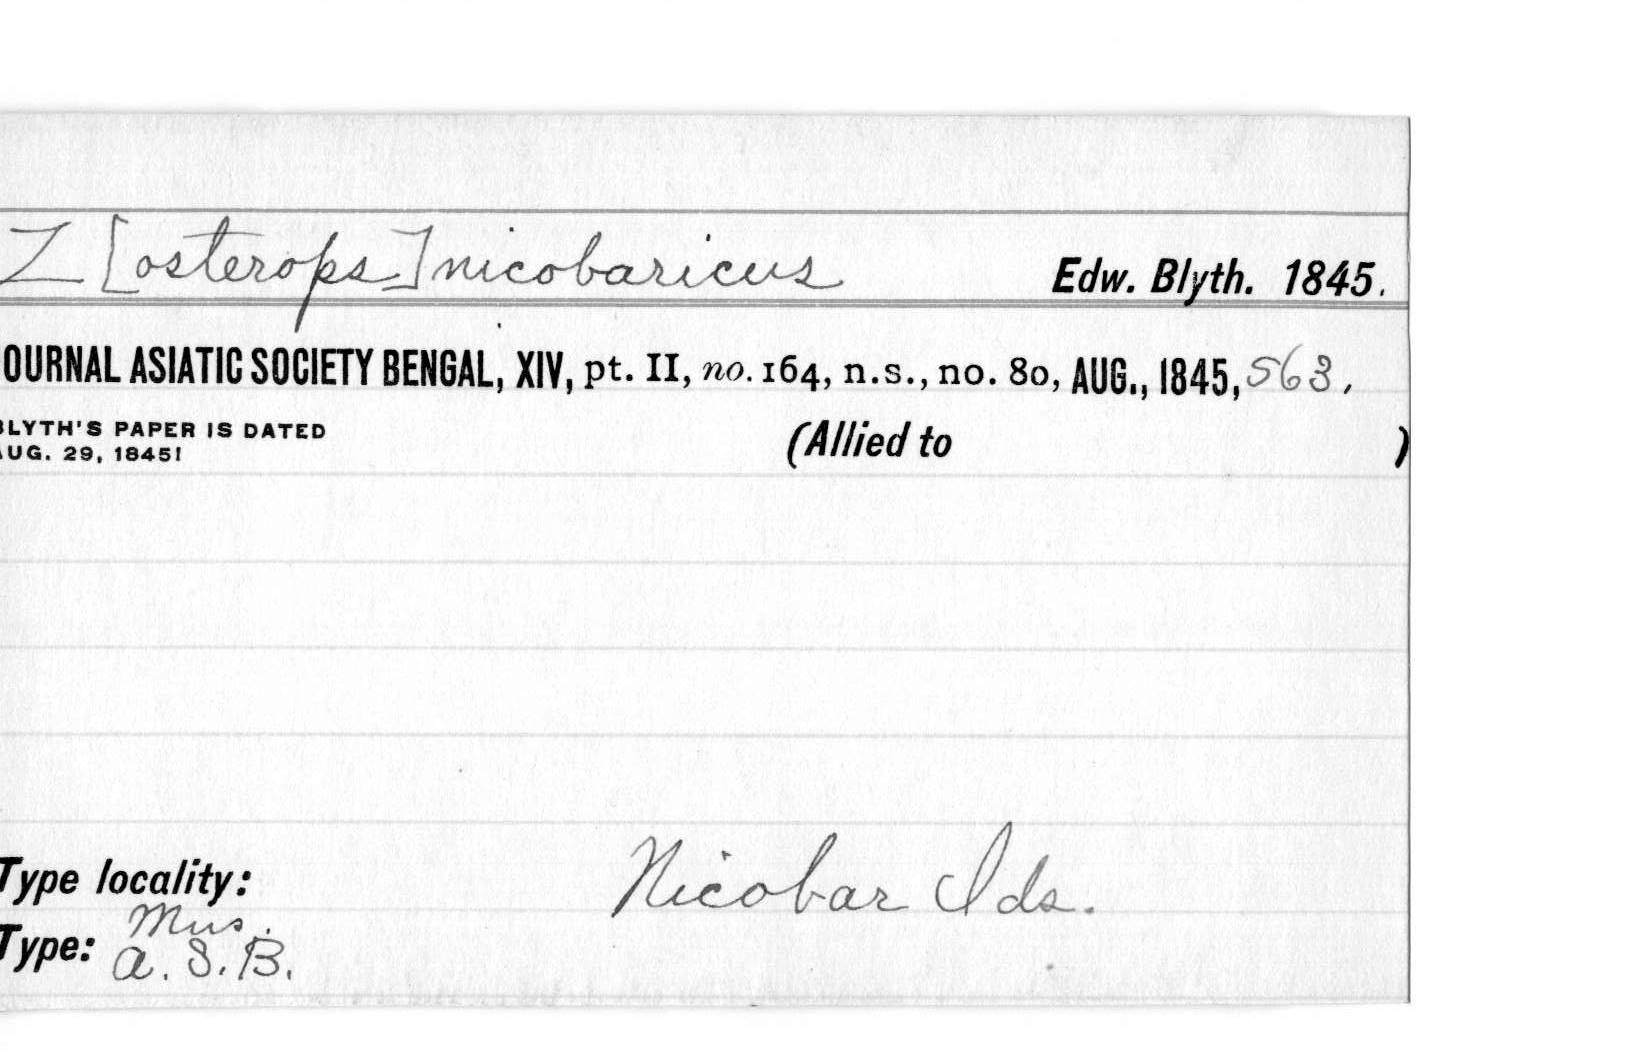 Z[osterops] nicobaricus Edw. Blyth. 1845.
OURNAL ASIATIC SOCIETY BENGAL, XIV, pt. II, no. 164, n.s., no. 80, AUG., 1845, 563.
BLYTH'S PAPER IS DATED
AUG. 29, 1845! (Allied to )
Type locality: Nicobar Ids.
Mus.
Type: A. S. B.